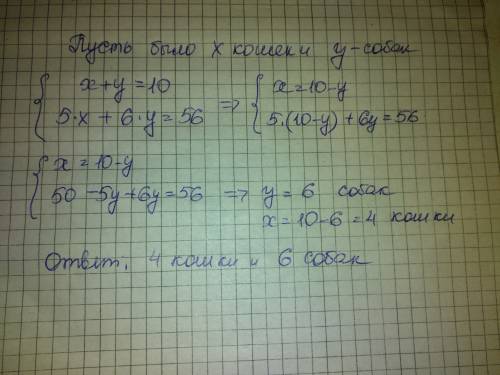 Пусть было x кошек и y-собак
{ x+y=10 => { x=10-y
5·x + 6·y=56 5·(10-y)+6y=56
{ x=10-y
50-5y+6y=56 => y=6 собак
x=10-6=4 кошки
Ответ: 4 кошки и 6 собак